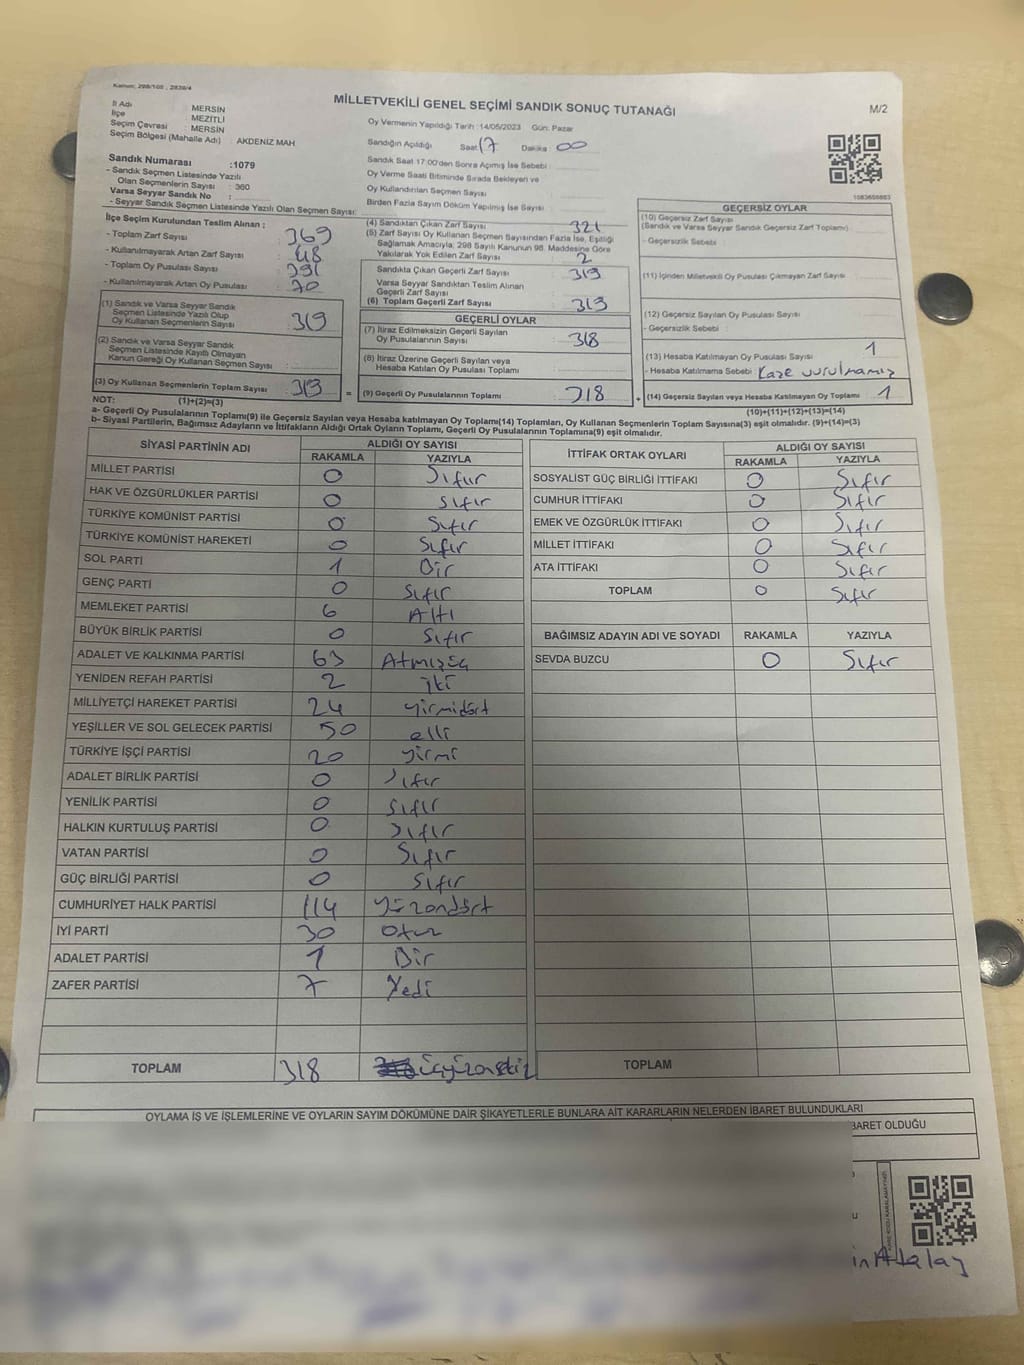 Kanun: 298/105 , 2839/4
MİLLETVEKİLİ GENEL SEÇİMİ SANDIK SONUÇ TUTANAĞI
M/2
İl Adı : MERSİN
İlçe : MEZİTLİ
Seçim Çevresi : MERSİN
Seçim Bölgesi (Mahalle Adı) : AKDENİZ MAH
Sandık Numarası :1079
- Sandık Seçmen Listesinde Yazılı
Olan Seçmenlerin Sayısı : 360
Varsa Seyyar Sandık No :
- Seyyar Sandık Seçmen Listesinde Yazılı Olan Seçmen Sayısı:
Oy Vermenin Yapıldığı Tarih :14/05/2023 Gün: Pazar
Sandığın Açıldığı Saat 17 Dakika 00
Sandık Saat 17:00'den Sonra Açılmış İse Sebebi :
Oy Verme Saati Bitiminde Sırada Bekleyen ve
Oy Kullandırılan Seçmen Sayısı
Birden Fazla Sayım Döküm Yapılmış İse Sayısı :
1083656663
İlçe Seçim Kurulundan Teslim Alınan ;
- Toplam Zarf Sayısı : 369
- Kullanılmayarak Artan Zarf Sayısı : 48
- Toplam Oy Pusulası Sayısı : 391
- Kullanılmayarak Artan Oy Pusulası : 70
(1) Sandık ve Varsa Seyyar Sandık
Seçmen Listesinde Yazılı Olup
Oy Kullanan Seçmenlerin Sayısı : 319
(2) Sandık ve Varsa Seyyar Sandık
Seçmen Listesinde Kayıtlı Olmayan
Kanun Gereği Oy Kullanan Seçmen Sayısı :
(3) Oy Kullanan Seçmenlerin Toplam Sayısı 319
(4) Sandıktan Çıkan Zarf Sayısı : 321
(5) Zarf Sayısı Oy Kullanan Seçmen Sayısından Fazla İse, Eşitliği
Sağlamak Amacıyla; 298 Sayılı Kanunun 98. Maddesine Göre
Yakılarak Yok Edilen Zarf Sayısı : 2
Sandıkta Çıkan Geçerli Zarf Sayısı : 319
Varsa Seyyar Sandıktan Teslim Alınan
Geçerli Zarf Sayısı :
(6) Toplam Geçerli Zarf Sayısı : 319
GEÇERLİ OYLAR
(7) İtiraz Edilmeksizin Geçerli Sayılan
Oy Pusulalarının Sayısı : 318
(8) İtiraz Üzerine Geçerli Sayılan veya
Hesaba Katılan Oy Pusulası Toplamı :
= (9) Geçerli Oy Pusulalarının Toplamı : 318
GEÇERSİZ OYLAR
(10) Geçersiz Zarf Sayısı
(Sandık ve Varsa Seyyar Sandık Geçersiz Zarf Toplamı) :
- Geçersizlik Sebebi :
(11) İçinden Milletvekili Oy Pusulası Çıkmayan Zarf Sayısı :
(12) Geçersiz Sayılan Oy Pusulası Sayısı :
- Geçersizlik Sebebi :
(13) Hesaba Katılmayan Oy Pusulası Sayısı : 1
- Hesaba Katılmama Sebebi : Kaşe vurulmamış
+ (14) Geçersiz Sayılan veya Hesaba Katılmayan Oy Toplamı : 1
NOT: (1)+(2)=(3) (10)+(11)+(12)+(13)=(14)
a- Geçerli Oy Pusulalarının Toplamı(9) ile Geçersiz Sayılan veya Hesaba katılmayan Oy Toplamı(14) Toplamları, Oy Kullanan Seçmenlerin Toplam Sayısına(3) eşit olmalıdır. (9)+(14)=(3)
b- Siyasi Partilerin, Bağımsız Adayların ve İttifakların Aldığı Ortak Oyların Toplamı, Geçerli Oy Pusulalarının Toplamına(9) eşit olmalıdır.
SİYASİ PARTİNİN ADI ALDIĞI OY SAYISI
RAKAMLA YAZIYLA
MİLLET PARTİSİ 0 Sıfır
HAK VE ÖZGÜRLÜKLER PARTİSİ 0 Sıfır
TÜRKİYE KOMÜNİST PARTİSİ 0 Sıfır
TÜRKİYE KOMÜNİST HAREKETİ 0 Sıfır
SOL PARTİ 1 Bir
GENÇ PARTİ 0 Sıfır
MEMLEKET PARTİSİ 6 Altı
BÜYÜK BİRLİK PARTİSİ 0 Sıfır
ADALET VE KALKINMA PARTİSİ 63 Atmışüç
YENİDEN REFAH PARTİSİ 2 iki
MİLLİYETÇİ HAREKET PARTİSİ 24 yirmidört
YEŞİLLER VE SOL GELECEK PARTİSİ 50 elli
TÜRKİYE İŞÇİ PARTİSİ 20 yirmi
ADALET BİRLİK PARTİSİ 0 Sıfır
YENİLİK PARTİSİ 0 Sıfır
HALKIN KURTULUŞ PARTİSİ 0 Sıfır
VATAN PARTİSİ 0 Sıfır
GÜÇ BİRLİĞİ PARTİSİ 0 Sıfır
CUMHURİYET HALK PARTİSİ 114 Yüzondört
İYİ PARTİ 30 Otuz
ADALET PARTİSİ 1 Bir
ZAFER PARTİSİ 7 Yedi
TOPLAM 318 üçyüzonsekiz
İTTİFAK ORTAK OYLARI ALDIĞI OY SAYISI
RAKAMLA YAZIYLA
SOSYALİST GÜÇ BİRLİĞİ İTTİFAKI 0 Sıfır
CUMHUR İTTİFAKI 0 Sıfır
EMEK VE ÖZGÜRLÜK İTTİFAKI 0 Sıfır
MİLLET İTTİFAKI 0 Sıfır
ATA İTTİFAKI 0 Sıfır
TOPLAM 0 Sıfır
BAĞIMSIZ ADAYIN ADI VE SOYADI RAKAMLA YAZIYLA
SEVDA BUZCU 0 Sıfır
TOPLAM
OYLAMA İŞ VE İŞLEMLERİNE VE OYLARIN SAYIM DÖKÜMÜNE DAİR ŞİKAYETLERLE BUNLARA AİT KARARLARIN NELERDEN İBARET BULUNDUKLARI
BARET OLDUĞU
in Atalay